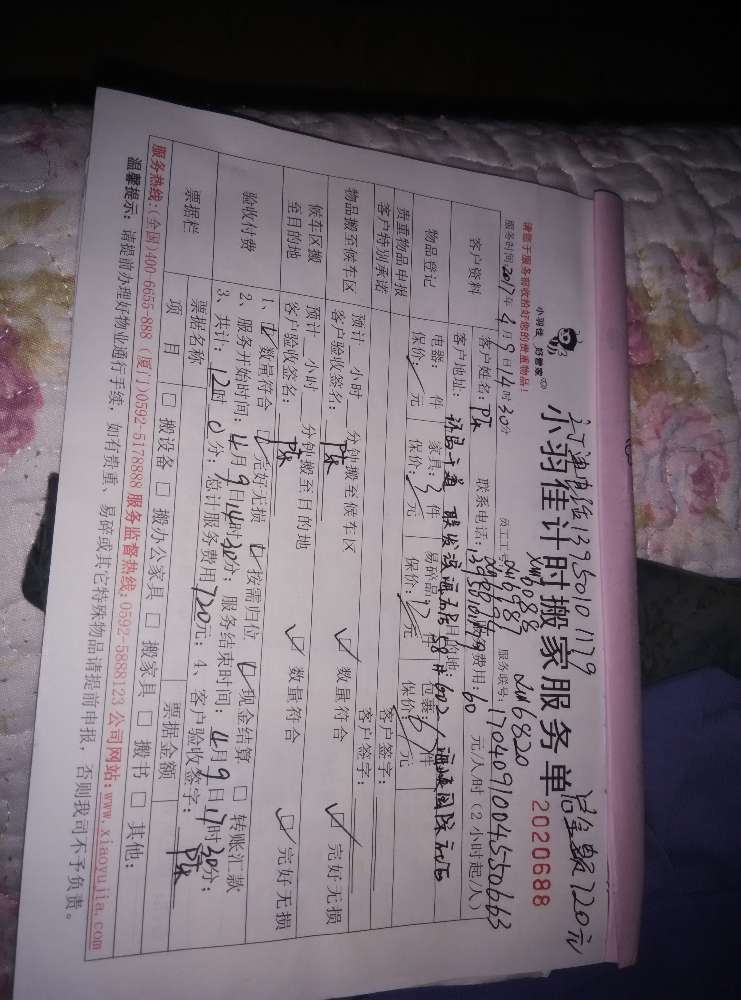 订单电话13950101179 总金额720元
小羽佳 好管家
小羽佳计时搬家服务单 2020688
请您于服务前收拾好您的贵重物品!
服务时间:2017年4月9日14时30分 员工工号: XM6088 服务联号:1704091004550663
客户资料 客户姓名: 联系电话:13950101179 服务费用:60元/人时(2小时起/人)
客户地址: 目的地:
物品登记 电器: 件 家具:3件 易碎品: 件 包裹: 件
保价: 元 保价: 元 保价: 元 保价: 元
贵重物品申报 客户签字:
客户特别承诺 客户签字:
物品搬至候车区 预计 小时 分钟搬至候车区 ☑ 数量符合 ☑ 完好无损
客户验收签名:
候车区搬至目的地 预计 小时 分钟搬至目的地 ☑ 数量符合 ☑ 完好无损
客户验收签名:
验收付费 1、☑数量符合 ☑完好无损 ☑按需归位 ☑现金结算 □ 转账汇款
2、服务开始时间:4月9日14时30分;服务结束时间:4月9日17时30分;
3、共计:12时0分;总计服务费用720元;4、客户验收签字:
票据栏 票据名称 票据金额
项 目 □ 搬设备 □ 搬办公家具 □ 搬家具 □ 搬书 □ 其他:
服务热线:(全国)400-6655-888 (厦门)0592-5178888 服务监督热线:0592-5888123 公司网站:www.xiaoyujia.com
温馨提示: 请提前办理好物业通行手续,如有贵重、易碎或其它特殊物品请提前申报,否则我司不予负责。